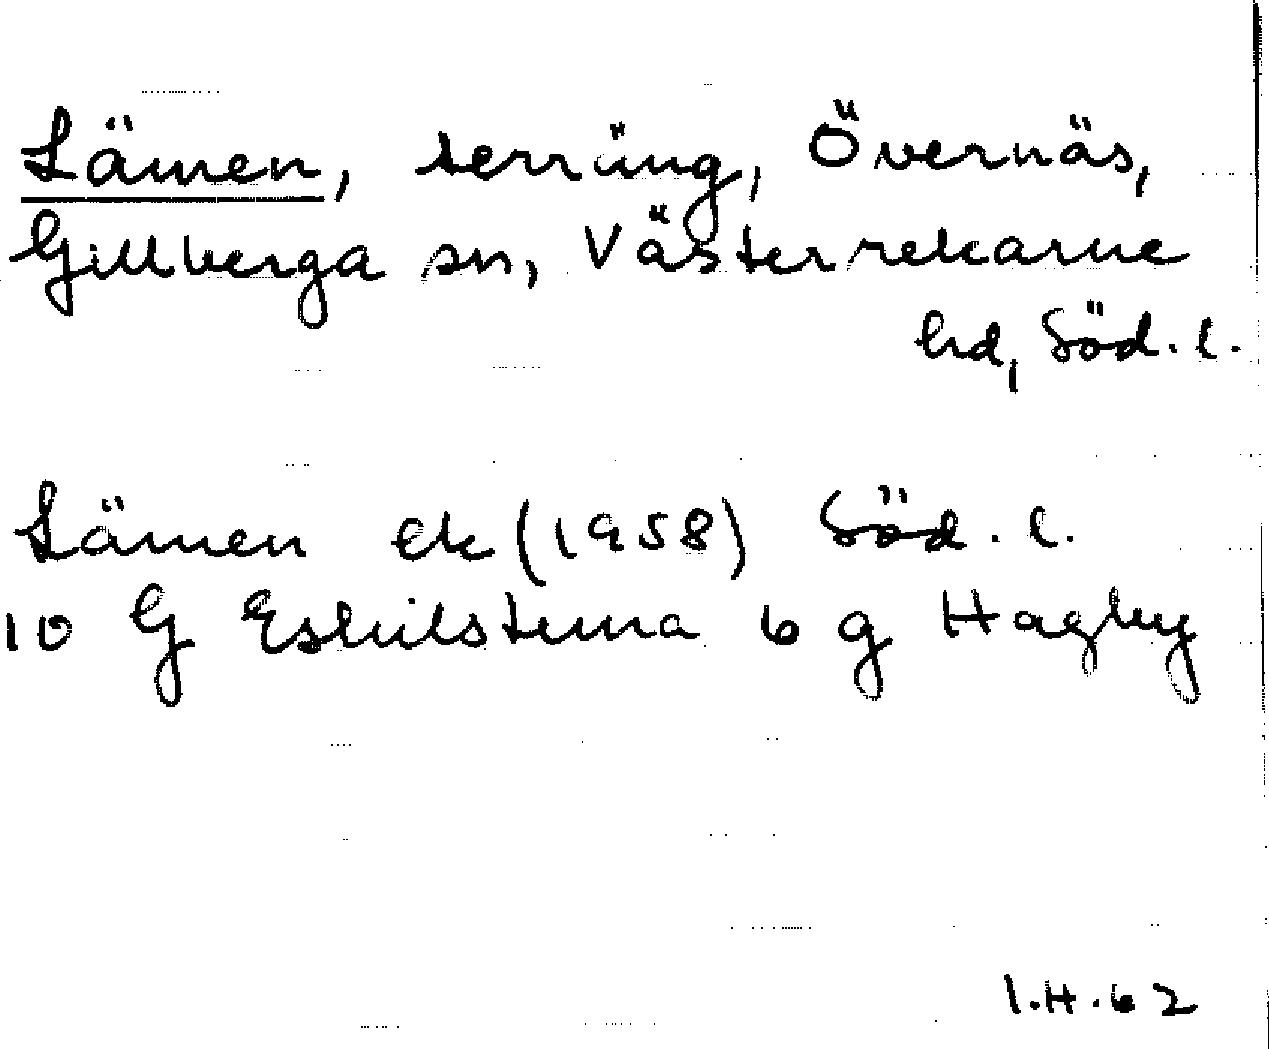 Lämen, terräng, Övernäs,
Gillberga sn, Västerrekarne
hd, Söd. l.
Lämen ek (1958) Söd. l.
10 G Eskilstuna 6 g Hagby
I.H. 62